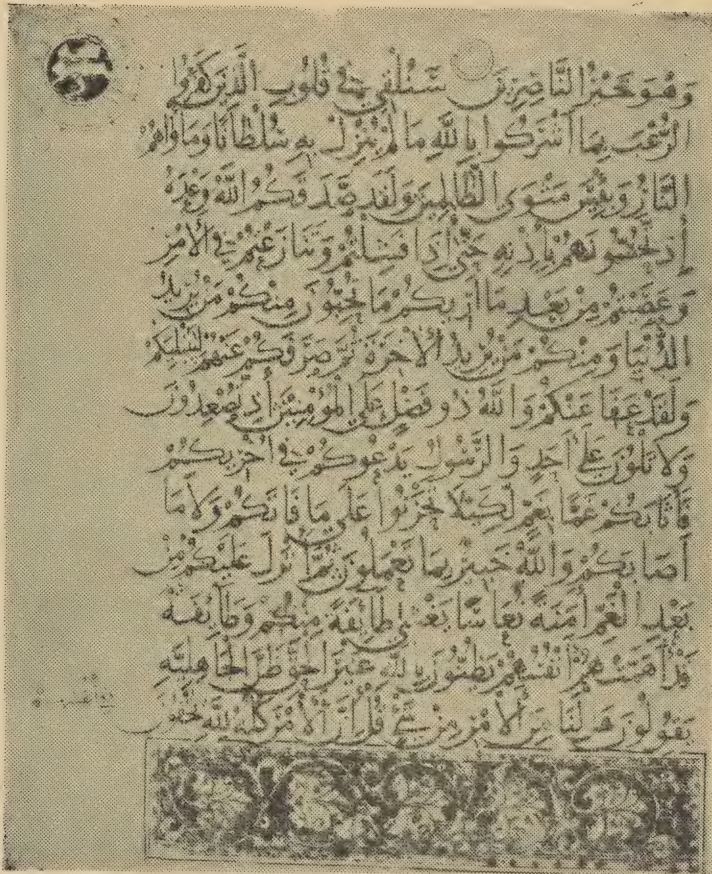 وَهُوَ خَيْرُ النَّاصِرِينَ سَنُلْقِي فِي قُلُوبِ الَّذِينَ كَفَرُوا
الرُّعْبَ بِمَا أَشْرَكُوا بِاللَّهِ مَا لَمْ يُنَزِّلْ بِهِ سُلْطَانًا وَمَأْوَاهُمُ
النَّارُ وَبِئْسَ مَثْوَى الظَّالِمِينَ وَلَقَدْ صَدَقَكُمُ اللَّهُ وَعْدَهُ
إِذْ تَحُسُّونَهُمْ بِإِذْنِهِ حَتَّى إِذَا فَشِلْتُمْ وَتَنَازَعْتُمْ فِي الْأَمْرِ
وَعَصَيْتُمْ مِنْ بَعْدِ مَا أَرَاكُمْ مَا تُحِبُّونَ مِنْكُمْ مَنْ يُرِيدُ
الدُّنْيَا وَمِنْكُمْ مَنْ يُرِيدُ الْآخِرَةَ ثُمَّ صَرَفَكُمْ عَنْهُمْ لِيَبْتَلِيَكُمْ
وَلَقَدْ عَفَا عَنْكُمْ وَاللَّهُ ذُو فَضْلٍ عَلَى الْمُؤْمِنِينَ إِذْ تُصْعِدُونَ
وَلَا تَلْوُونَ عَلَى أَحَدٍ وَالرَّسُولُ يَدْعُوكُمْ فِي أُخْرَاكُمْ
فَأَثَابَكُمْ غَمًّا بِغَمٍّ لِكَيْلَا تَحْزَنُوا عَلَى مَا فَاتَكُمْ وَلَا مَا
أَصَابَكُمْ وَاللَّهُ خَبِيرٌ بِمَا تَعْمَلُونَ ثُمَّ أَنْزَلَ عَلَيْكُمْ مِنْ
بَعْدِ الْغَمِّ أَمَنَةً نُعَاسًا يَغْشَى طَائِفَةً مِنْكُمْ وَطَائِفَةٌ
قَدْ أَهَمَّتْهُمْ أَنْفُسُهُمْ يَظُنُّونَ بِاللَّهِ غَيْرَ الْحَقِّ ظَنَّ الْجَاهِلِيَّةِ
يَقُولُونَ هَلْ لَنَا مِنَ الْأَمْرِ مِنْ شَيْءٍ قُلْ إِنَّ الْأَمْرَ كُلَّهُ لِلَّهِ يُخْفُونَ